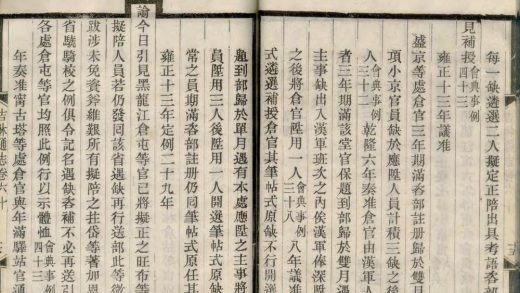 每一缺遴選二人擬定正陪出具考語咨部
見補授會典事例四十三
雍正十三年議准
盛京等處倉官三年期滿咨部註册歸於雙月
項小京官員缺於應陞人員計積三缺之後
人會典事例三十二 乾隆六年奏准倉官由漢軍人
者三年期滿該堂官保題到部歸於雙月遇
主事缺出入漢軍班次之內俟漢軍俸深陞
之後將倉官陞用一人會典事例三十八 八年議准
式遴選補授倉官其筆帖式原缺不行開選
題到部歸於單月遇有本處應陞之主事將
員陞用三人後陞用一人開選筆帖式原
常之員期滿咨部註册仍同筆帖式原任其
雍正十三年定例二十九年
諭今日引見黑龍江倉屯等官已將擬正之旺布等
擬陪人員若仍發回該省遇缺再行送部此等微
跋涉未免資斧維艱所有擬陪之挂岱等著加恩
省驍騎校之例俱令記名遇缺咨補不必再送引
各處倉屯等官均照此例行以示體恤會典事例四十三
年奏准甯古塔等處倉官與年滿驛站官通
吉林通志卷六十